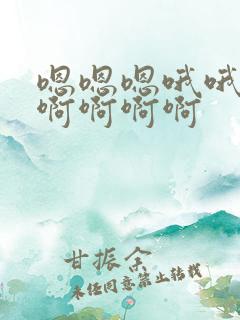 嗯嗯嗯哦哦
啊啊啊啊
甘振余
未经同意禁止转载